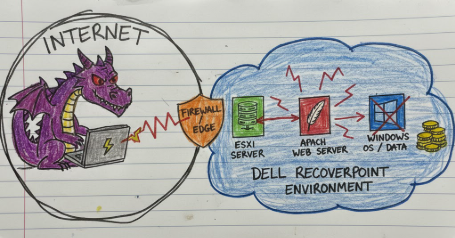 INTERNET
FIREWALL
/
EDGE
ESXI
SERVER
APACH
WEB SERVER
WINDOWS
OS / DATA
DELL RECOVERPOINT
ENVIRONMENT